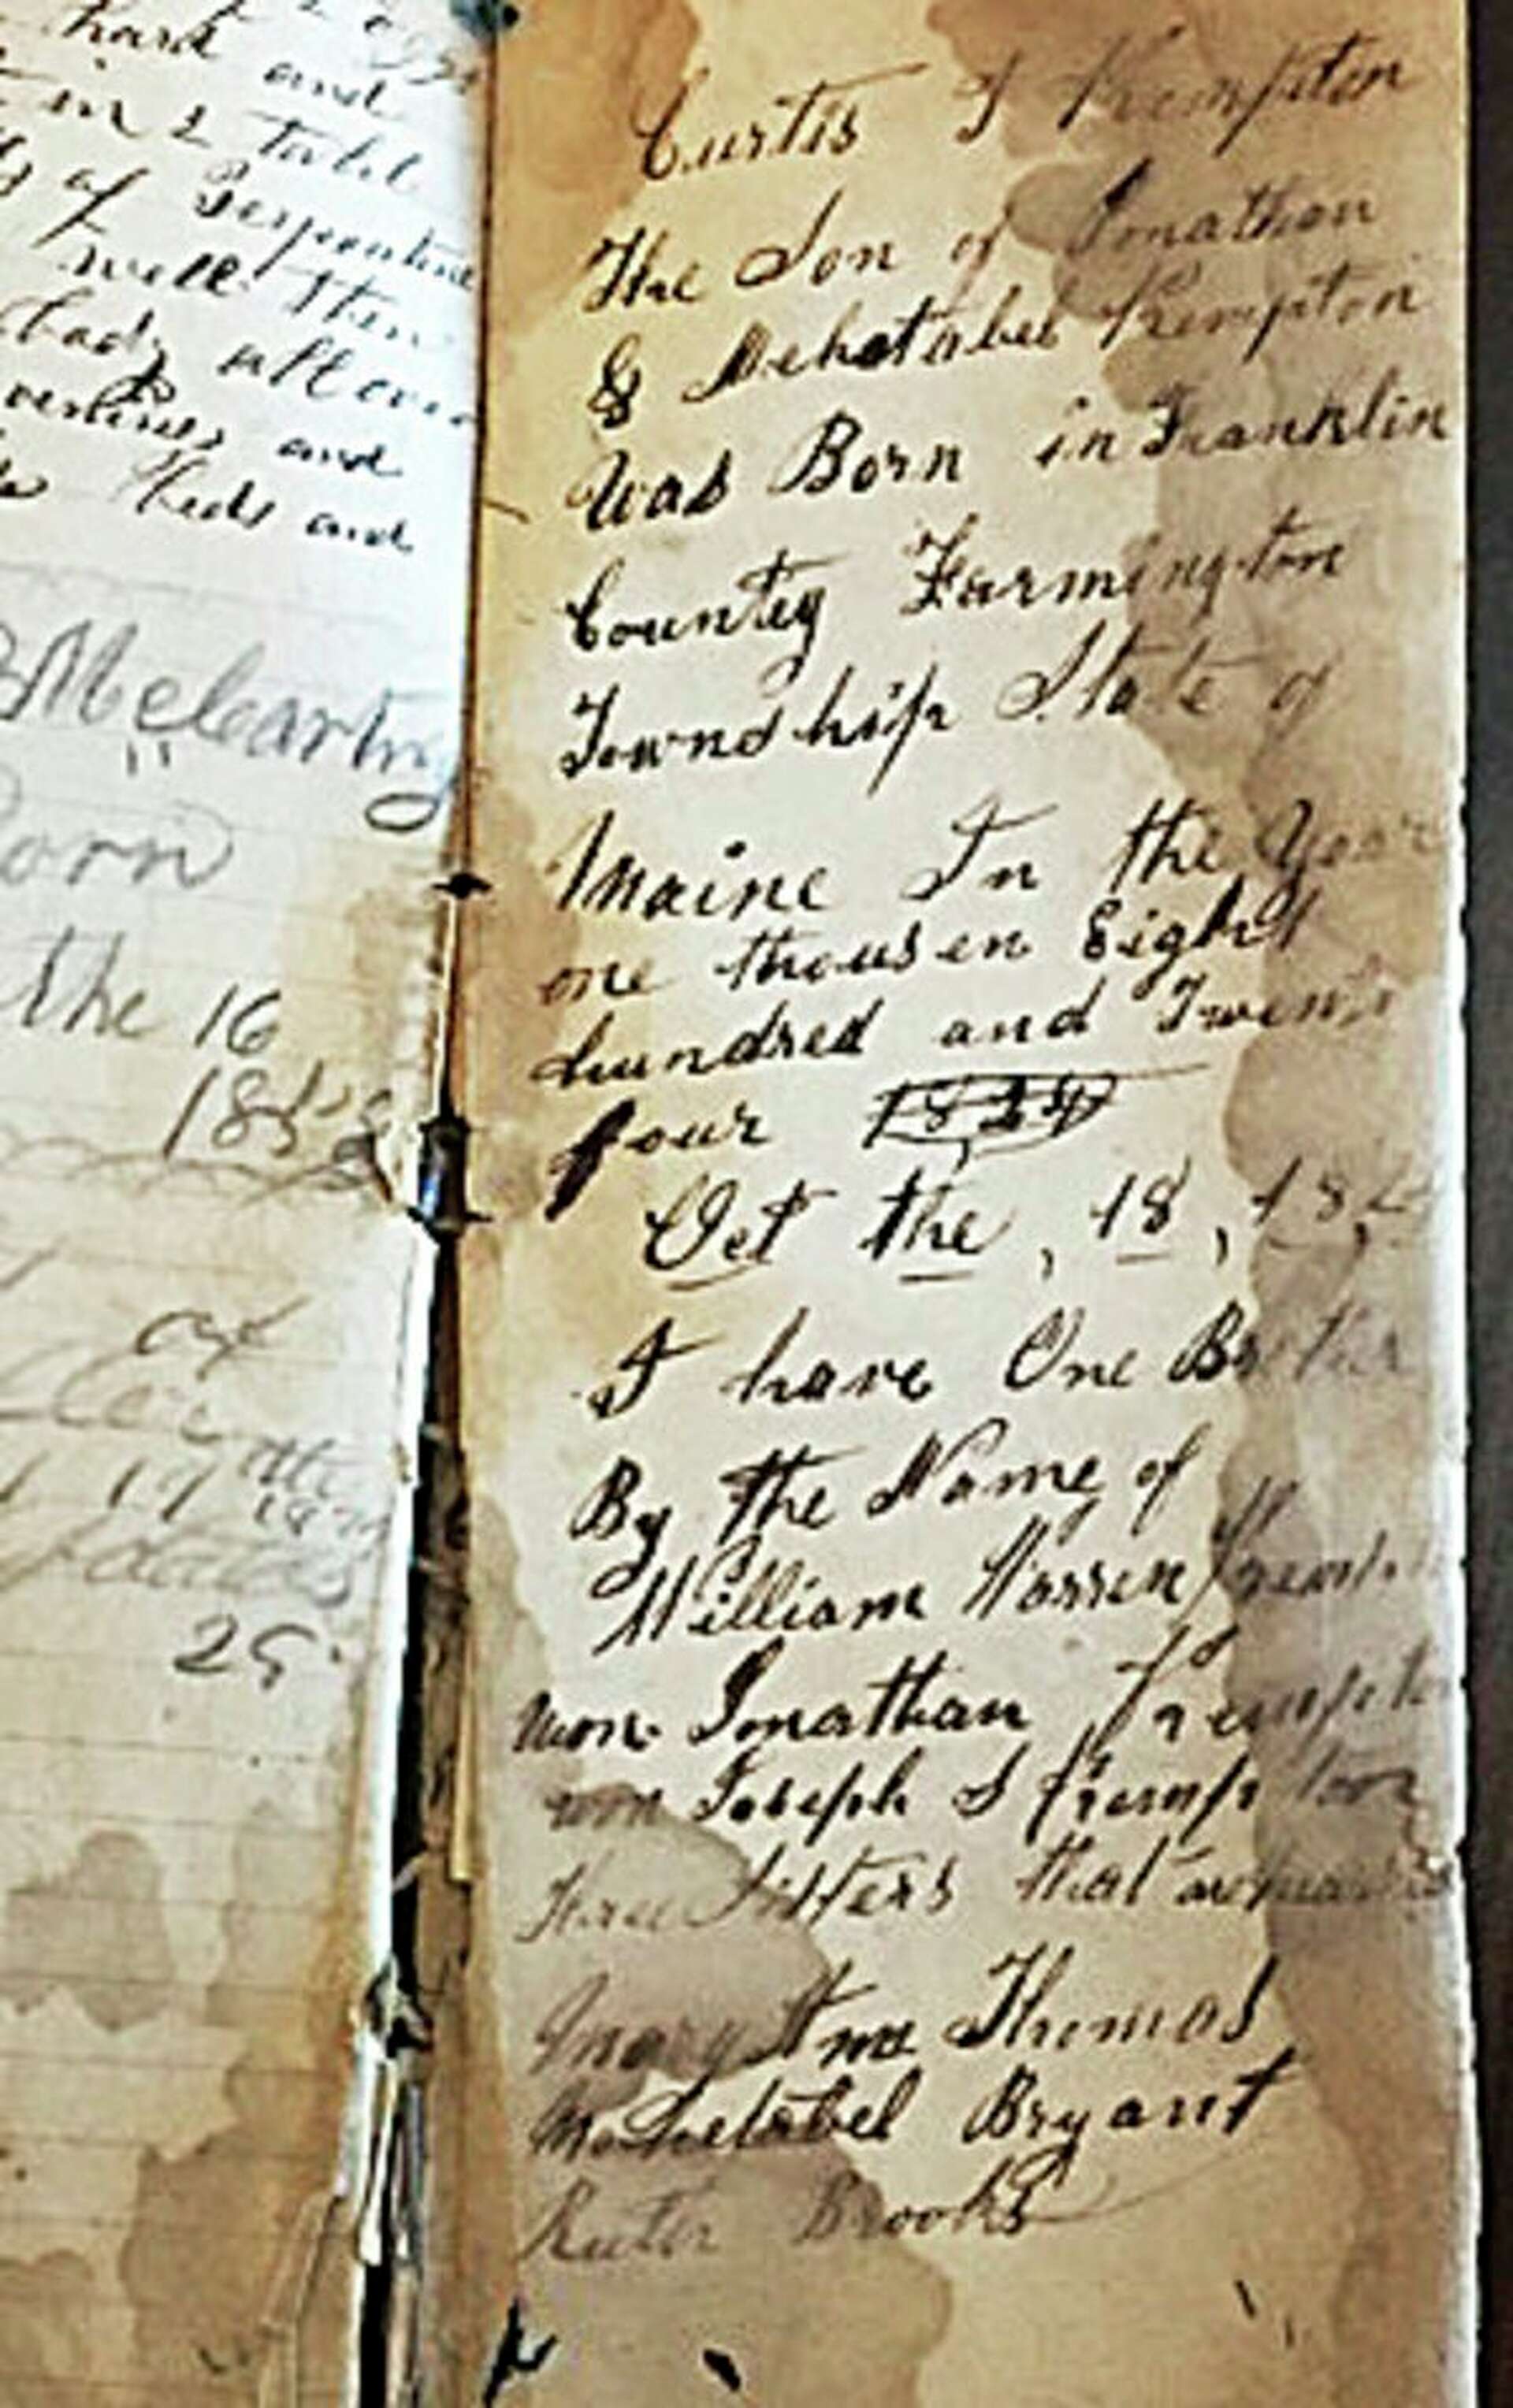 hard and
in 2 tabl
of Serpentine
well then
body all over
and
Beds and
McCleartny
Born
the 16
of
the
17
25
Curtis S Kempton
The Son of Jonathan
& Mehetabel Kempton
Was Born in Franklin
County Farmington
Township State of
Maine In the Year
one thousen Eight
hundred and Twenty
four 1824
Oct the, 18, 182
I have One Brother
By the Name of
William Warren Kempt
won Jonathan Kempto
won Joseph S Kempton
three Sisters that
Mary Ann Thomas
Mehetabel Bryant
Ruth Brooks